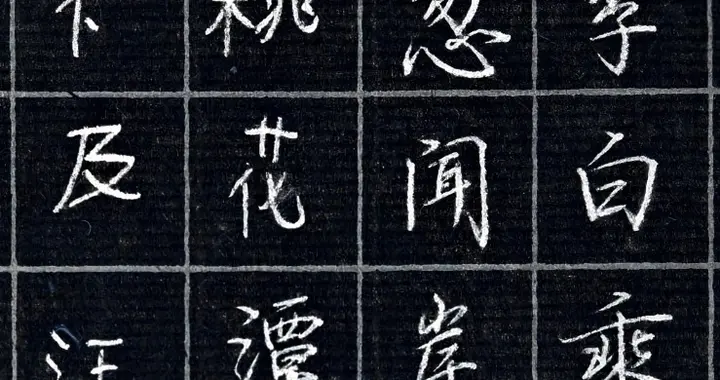 李白乘
忽闻岸
桃花潭
不及汪